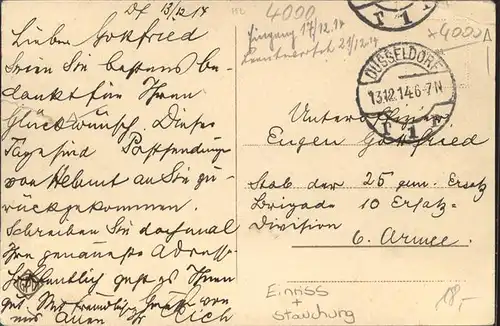 Df 13/12 14
Lieber Gottfried
Seien Sie bestens be-
dankt für Ihren
Glückwunsch. Dieser
Tage sind Postsendungen
von Helmut an Sie zu-
rückgekommen.
Schreiben Sie doch mal
Ihre genaueste Adresse.
Hoffentlich geht es Ihnen
gut. Mit freundlich. Grüßen von
uns Allen Ihr
4000
Eingang 17/12.14
Beantwortet 21/12.14
4000
DÜSSELDORF
13.12.14.6-7N
* 1 r
Eugen Gottfried
Stab der 25 gem. Ersatz
Brigade 10 Ersatz-
Division
6. Armee.
Einriss
+
Stauchung
18,-